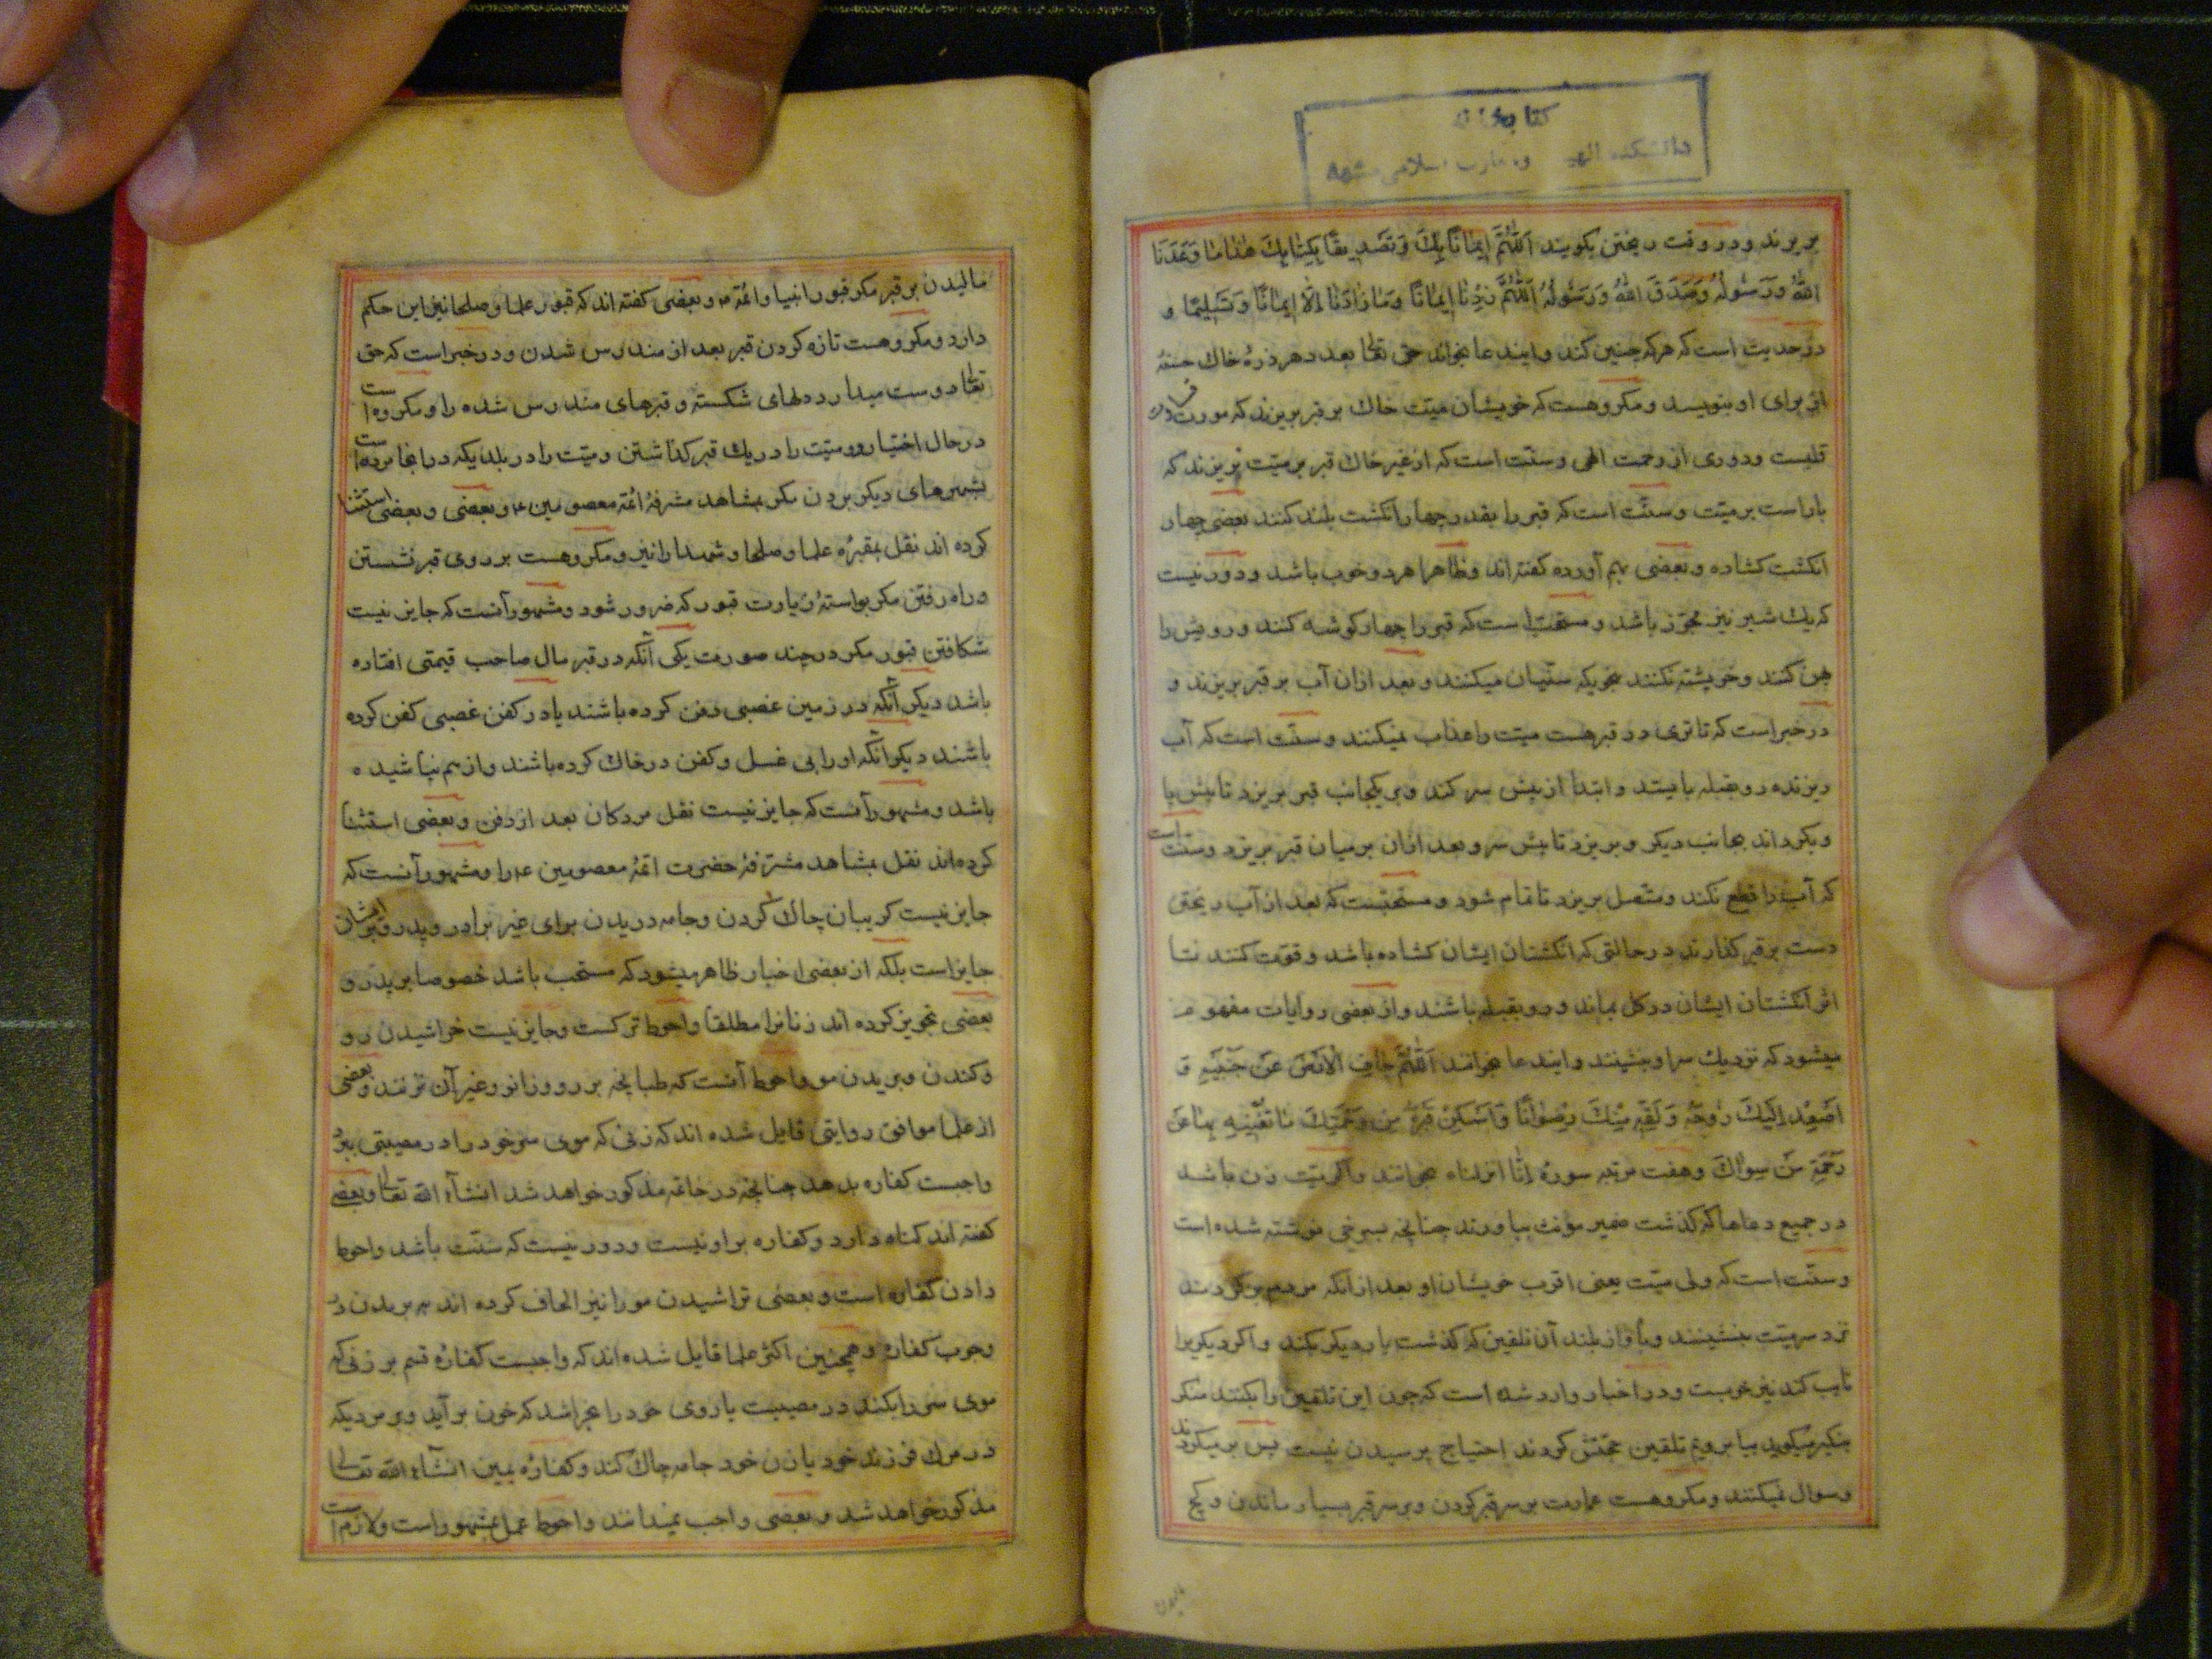 کتابخانه
دانشکده الهیات و معارف اسلامی مشهد
بریزند و در وقت ریختن بگویند اَللّٰهُمَّ اِیمٰانًا بِكَ وَ تَصْدِیقًا بِکِتٰابِكَ هٰذٰا مٰا وَعَدَنَا
اللّٰهُ وَ رَسُولُهُ وَ صَدَقَ اللّٰهُ وَ رَسُولُهُ اَللّٰهُمَّ زِدْنٰا اِیمٰانًا وَ مٰا زٰادَنٰا اِلّٰا اِیمٰانًا وَ تَسْلِیمًا و
در حدیث است که هرکه چنین کند و ایندعا بخواند حق تعالی بعدد هر ذرهٔ خاك حسنهٔ
برای او بنویسد و مکروهست که خویشان میّت خاك بر قبر بریزند که مورث
قلبست و دوری از رحمت الهی و سنّت است که از غیر خاك قبر بر میّت نریزند که
باراست بر میّت و سنّت است که قبر را بقدر چهار انکشت بلند کنند بعضی چهار
انکشت کشاده و بعضی بهم آورده کفته اند و ظاهرا هر دو خوب باشد و دور نیست
که یك شبر نیز مجوّز باشد و مستحبّ است که قبر را چهار کوشه کنند و رویش را
پهن کنند و خرپشته نکنند بنحویکه سنّیان میکنند و بعد ازان آب بر قبر بریزند و
در خبر است که تا تری در قبر هست میّت را عذاب نمیکنند و سنّت است که آب
ریزنده رو بقبله بایستد و ابتدا از پیش سر کند و بر یکجانب قبر بریزد تا پیش پا
و بکرداند بجانب دیکر و بریزد تا پیش سر و بعد ازان بر میان قبر بریزد و سنّت است
که آب را قطع نکند و متّصل بریزد تا تمام شود و مستحبّست که بعد از آب ریختن
دست بر قبر کذارند در حالتی که انکشتان ایشان کشاده باشد و قوّت کنند تا
اثر انکشتان ایشان در کل بماند و رو بقبله باشند و از بعضی روایات مفهوم
میشود که نزدیك سر او بنشینند و ایندعا بخوانند اَللّٰهُمَّ جٰافِ الْاَرْضَ عَنْ جَنْبَیْهِ وَ
اَصْعِدْ اِلَیْكَ رُوحَهُ وَ لَقِّهِ مِنْكَ رِضْوٰانًا وَ اَسْکِنْ قَبْرَهُ مِنْ رَحْمَتِكَ مٰا تُغْنِیهِ بِهٰا عَنْ
رَحْمَةِ مَنْ سِوٰاكَ و هفت مرتبه سورهٔ اِنّٰا انزلناه بخوانند و اکر میّت زن باشد
در جمیع دعاها که کذشت ضمیر مؤنث بیاورند چنانچه بسرخی نوشته شده است
و سنّت است که ولی میّت یعنی اقرب خویشان او بعد ازانکه مردم برکردند
نزد سر میّت بنشینند و بآواز بلند آن تلقین که کذشت بار دیکر بکند و اکر دیکریرا
نایب کند نیز خوبست و در اخبار وارد شده است که چون این تلقین را بکنند منکر
بنکیر میکوید بیا برویم تلقین حجّتش کردند احتیاج پرسیدن نیست پس بر میکردند
و سوال نمیکنند و مکروهست عمارت بر سر قبر کردن و بر سر قبر بسیار ماندن و کچ
مالیدن بر قبر مکر قبور انبیا و ائمّه ع و بعضی کفته اند که قبور علما و صلحا نیز این حکم
دارد و مکروهست تازه کردن قبر بعد از مندرس شدن و در خبر است که حق
تعالی دوست میدارد دلهای شکسته و قبرهای مندرس شده را و مکروه است
در حال اختیار دو میّت را در یك قبر کذاشتن و میّت را در بلدیکه در انجا مرده است
بشهرهای دیکر بردن مکر بمشاهد مشرفهٔ ائمّه معصومین ع و بعضی و بعضی استثنا
کرده اند نقل بمقبرهٔ علما و صلحا و شهدا را نیز و مکروهست بر روی قبر نشستن
و راه رفتن مکر بواستهٔ زیارت قبور که ضرور شود و مشهور آنست که جایز نیست
شکافتن قبور مکر در چند صورت یکی آنکه در قبر مال صاحب قیمتی افتاده
باشد دیکر آنکه در زمین غصبی دفن کرده باشند یا در کفن غصبی کفن کرده
باشند دیکر آنکه او را بی غسل و کفن در خاك کرده باشند و از هم نپاشیده
باشد و مشهور آنست که جایز نیست نقل مردکان بعد از دفن و بعضی استثنا
کرده اند نقل بمشاهد مشرّفهٔ حضرت ائمّه معصومین ع را و مشهور آنست که
جایز نیست کریبان چاك کردن و جامه دریدن برای غیر برادر و پدر و بر ایشان
جایز است بلکه از بعضی اخبار ظاهر میشود که مستحب باشد خصوصا بر پدر و
بعضی تجویز کرده اند زنانرا مطلقا و احوط ترکست و جایز نیست خراشیدن رو
و کندن و بریدن مو و احوط آنست که طپانچه بر رو و زانو و غیر آن نزنند و بعضی
از علما موافق روایتی قایل شده اند که زنی که موی سر خود را در مصیبتی ببرد
واجبست کفاره بدهد چنانچه در خاتمه مذکور خواهد شد انشآء اللّه تعالی و بعضی
کفته اند کناه دارد و کفاره بر او نیست و دور نیست که سنّت باشد و احوط
دادن کفاره است و بعضی تراشیدن مو را نیز الحاق کرده اند به بریدن در
وجوب کفاره و همچنین اکثر علما قایل شده اند که واجبست کفارهٔ قسم بر زنی که
موی سر را بکند در مصیبت یا روی خود را بخراشد که خون بر آید و بر مردیکه
در مرك فرزند خود یا زن خود جامه چاك کند و کفارهٔ یمین انشآء اللّه تعالی
مذکور خواهد شد و بعضی واجب نمیدانند و احوط عمل بمشهور است و لازم است